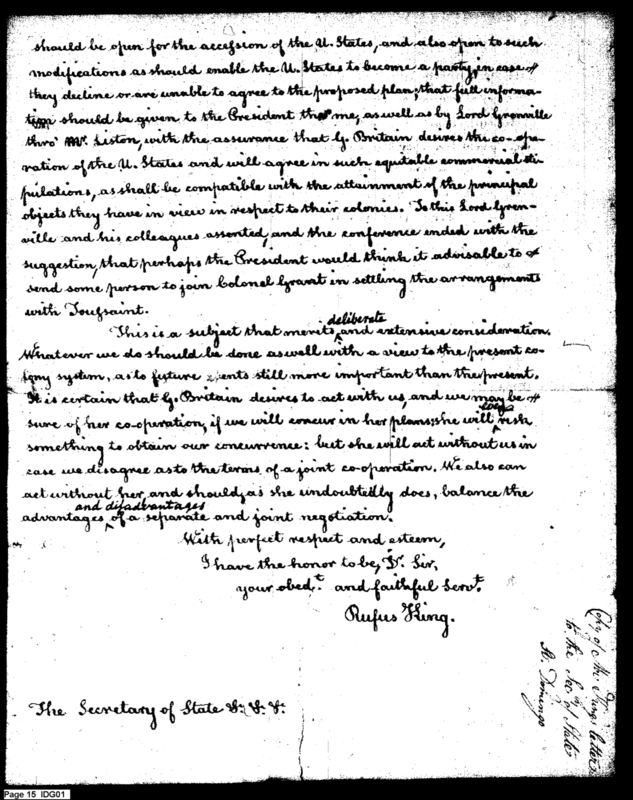 should be open for the accession of the U. States, and also open to such
modifications as should enable the U. States to become a party, in case
they decline or are unable to agree to the proposed plan; that full informa-
tion should be given to the President thro' me, as well as by Lord Grenville
thro' Mr. Liston, with the assurance that G. Britain desires the co-ope-
ration of the U. States and will agree in such equitable commercial sti-
pulations, as shall be compatible with the attainment of the principal
objects they have in view in respect to their colonies. To this Lord Gren-
ville and his colleagues assented, and the conference ended with the
suggestion, that perhaps the President would think it advisable to
send some person to join Colonel Grant in settling the arrangements
with Toussaint.
This is a subject that merits deliberate and extensive consideration.
Whatever we do should be done as well with a view to the present co-
lony system, as to future events still more important than the present.
It is certain that G. Britain desires to act with us, and we may be
sure of her co-operation, if we will concur in her plans; she will even risk
something to obtain our concurrence: but she will act without us in
case we disagree as to the terms of a joint co-operation. We also can
act without her, and should, as she undoubtedly does, balance the
advantages and disadvantages of a separate and joint negotiation.
With perfect respect and esteem,
I have the honor to be, Dr. Sir,
your obedt. and faithful Servt.
Rufus King.
The Secretary of State &. &. &.
Copy of Mr. King's letter
to the Secy of State
St. Domingo
Page 15 IDG01